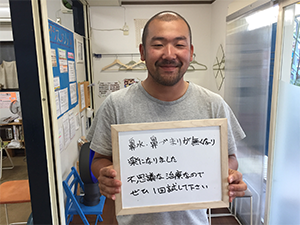 鼻水、鼻づまりが無くなり
楽になりました
不思議な治療なので
ぜひ1回試して下さい